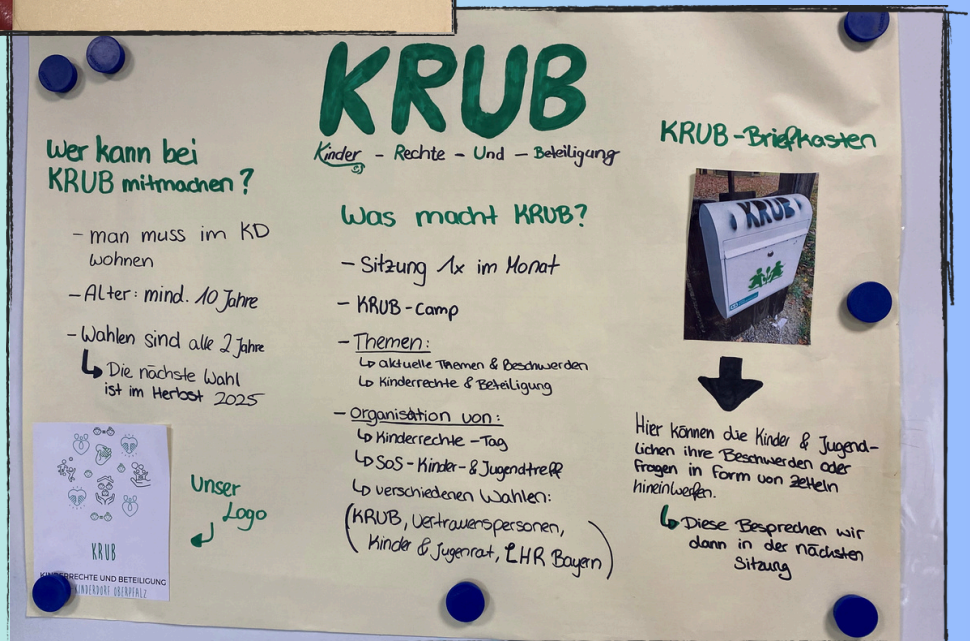 KRUB
Kinder - Rechte - Und - Beteiligung
Wer kann bei
KRUB mitmachen?
- man muss im KD
wohnen
- Alter: mind. 10 Jahre
- Wahlen sind alle 2 Jahre
↳ Die nächste Wahl
ist im Herbst 2025
Unser
Logo
KRUB
KINDERRECHTE UND BETEILIGUNG
KINDERDORF OBERPFALZ
Was macht KRUB?
- Sitzung 1x im Monat
- KRUB-Camp
- Themen:
↳ aktuelle Themen & Beschwerden
↳ Kinderrechte & Beteiligung
- Organisation von:
↳ Kinderrechte-Tag
↳ SoS-Kinder-&Jugendtreff
↳ verschiedenen Wahlen:
(KRUB, Vertrauenspersonen,
Kinder & Jugenrat, LHR Bayern)
KRUB-Briefkasten
KRUB
Hier können die Kinder & Jugend-
lichen ihre Beschwerden oder
Fragen in Form von Zetteln
hineinwerfen.
↳ Diese Besprechen wir
dann in der nächsten
Sitzung